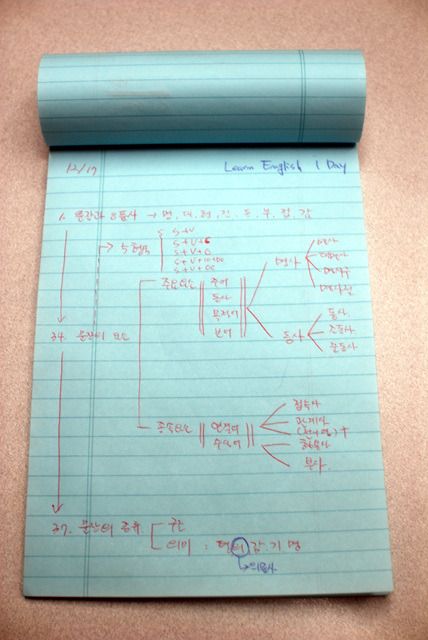 12/17
Learn English 1 Day
1. 문장과 8품사 → 명, 대, 형, 전, 동, 부, 접, 감
→ 5형식
S+V
S+V+C
S+V+O
S+V+IO+DO
S+V+OC
주요요소
주어
동사
목적어
보어
명사
명사
대명사
명사구
명사절
동사
동사
조동사
준동사
34. 문장의 요소
종속요소
연결어
수식어
접속사
관계사
부사
37. 문장의 종류
구조
의미 : 평 의 감. 기 명
→의문사